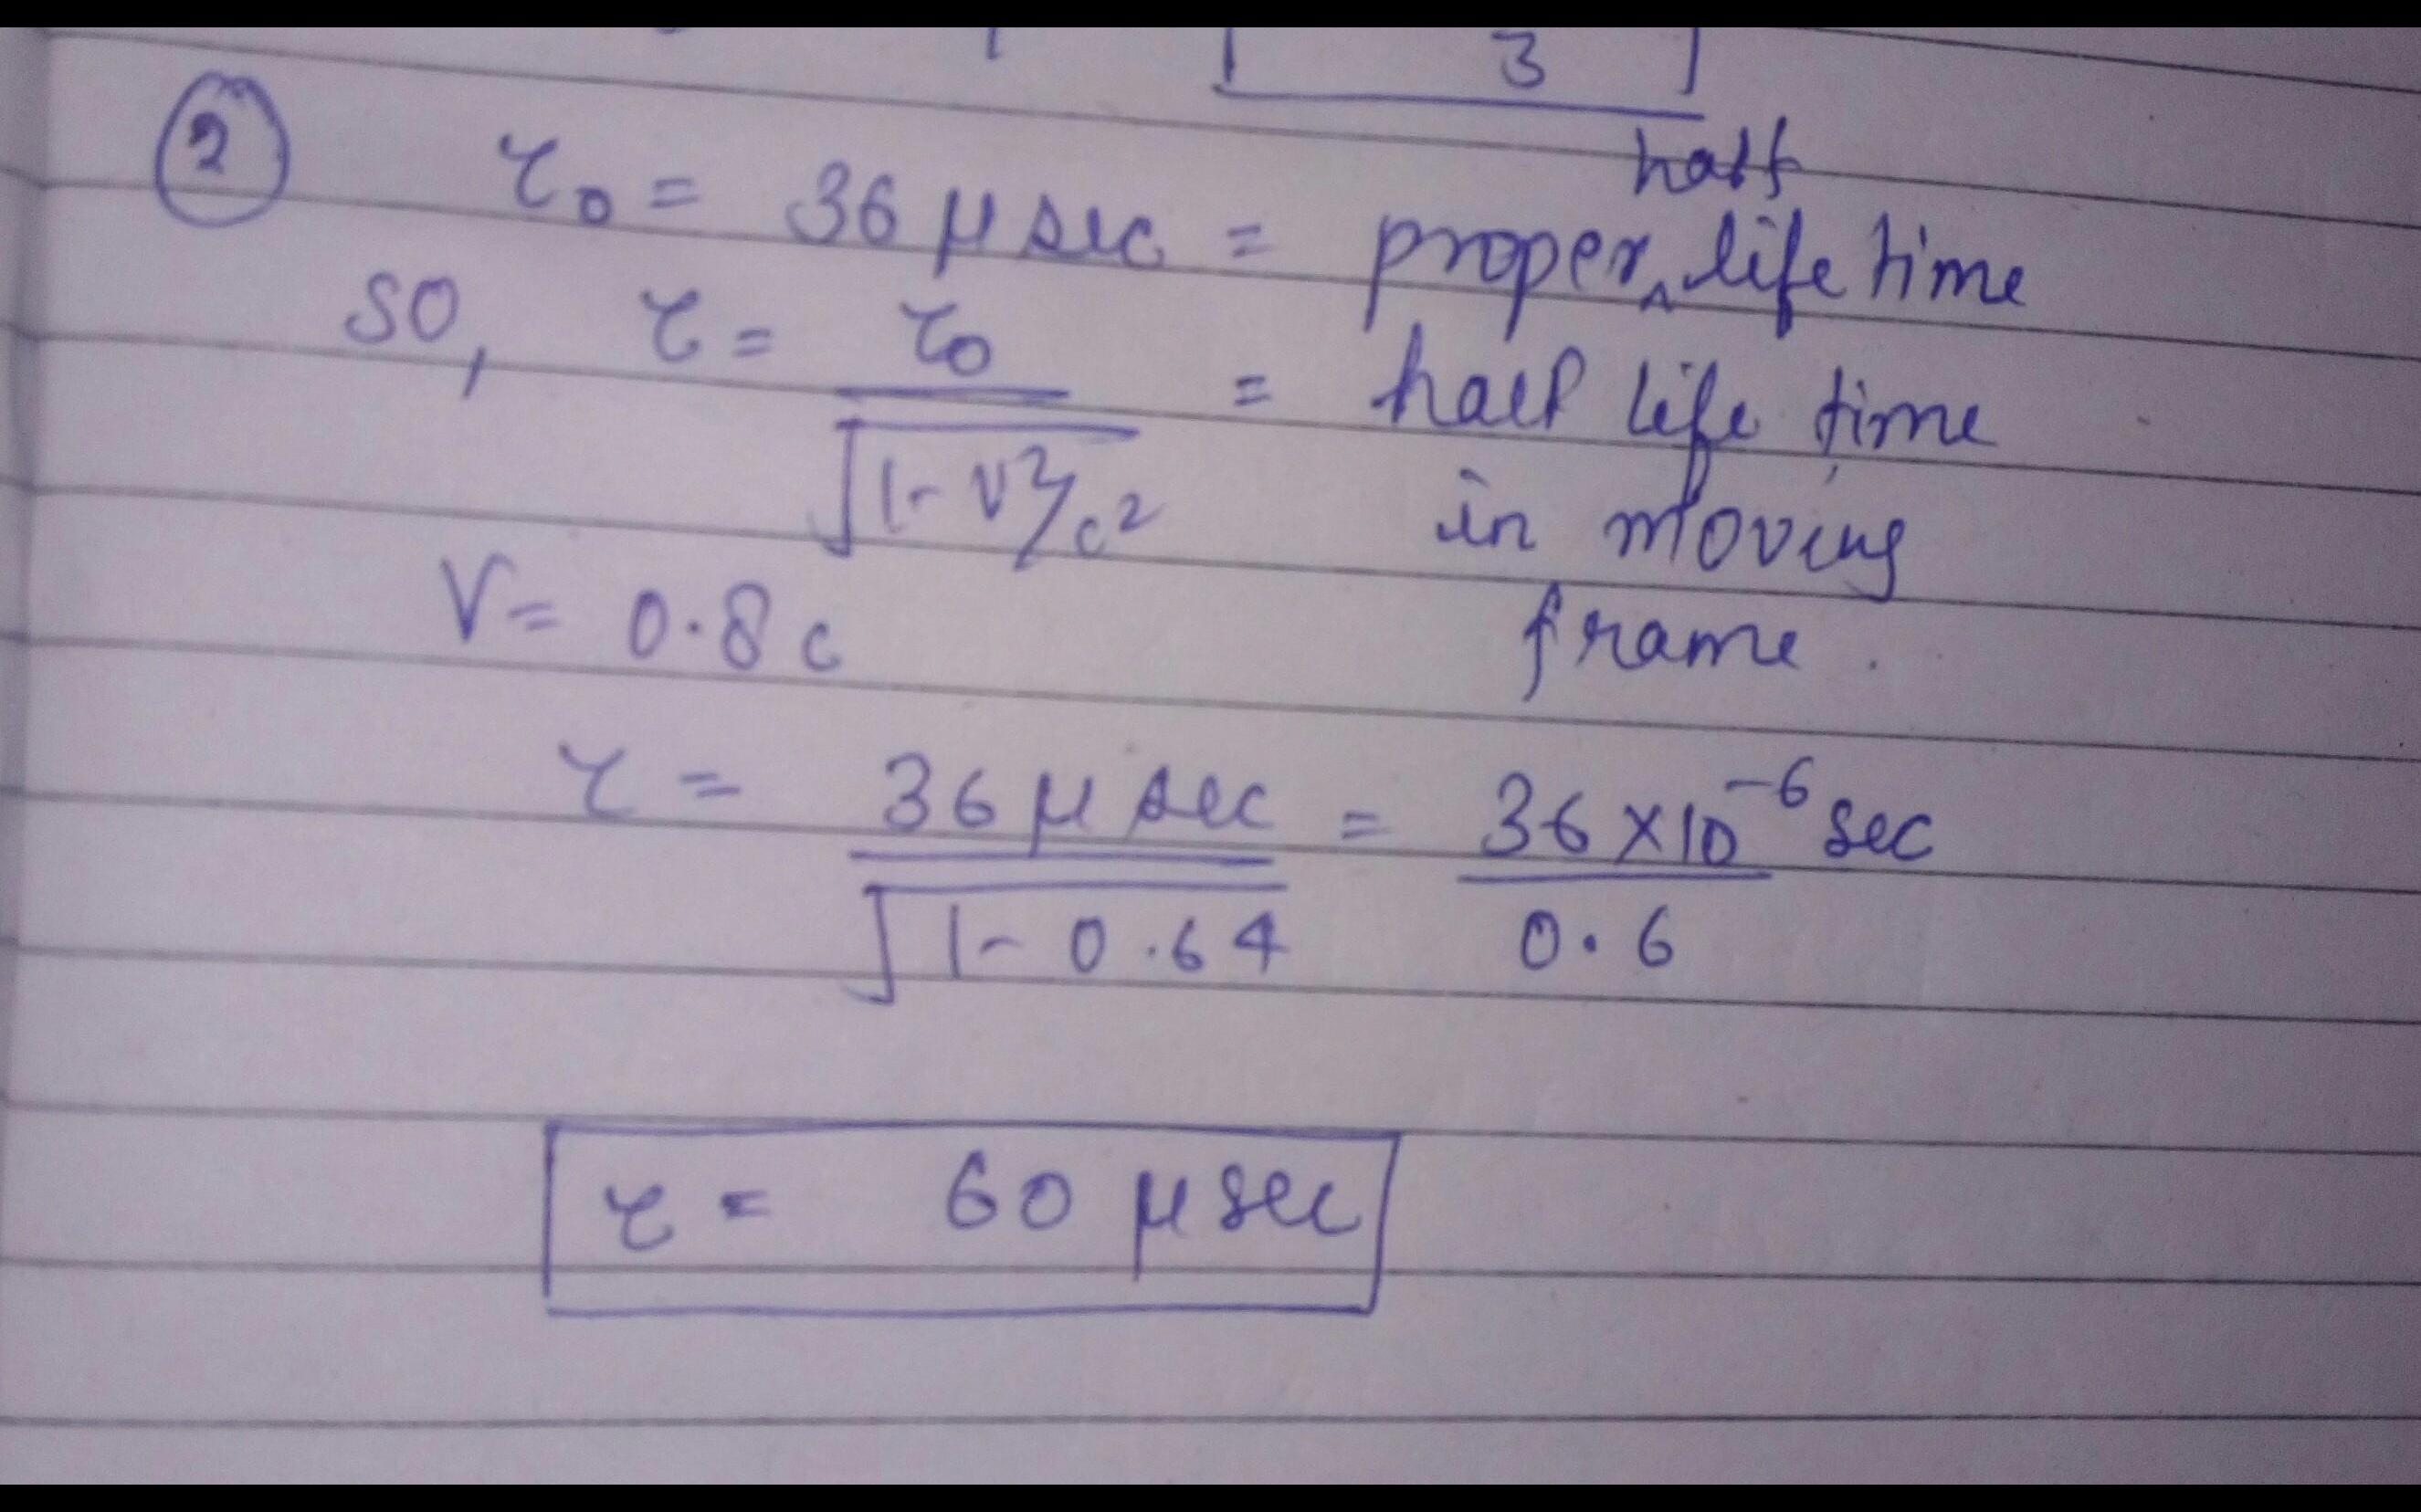 3
2
τ₀ = 36 μ sec = proper half life time
so, τ = τ₀ / √(1 - v²/c²) = half life time
in moving
V = 0.8 c
frame.
τ = 36 μ sec / √(1 - 0.64) = 36 × 10⁻⁶ sec / 0.6
τ = 60 μ sec